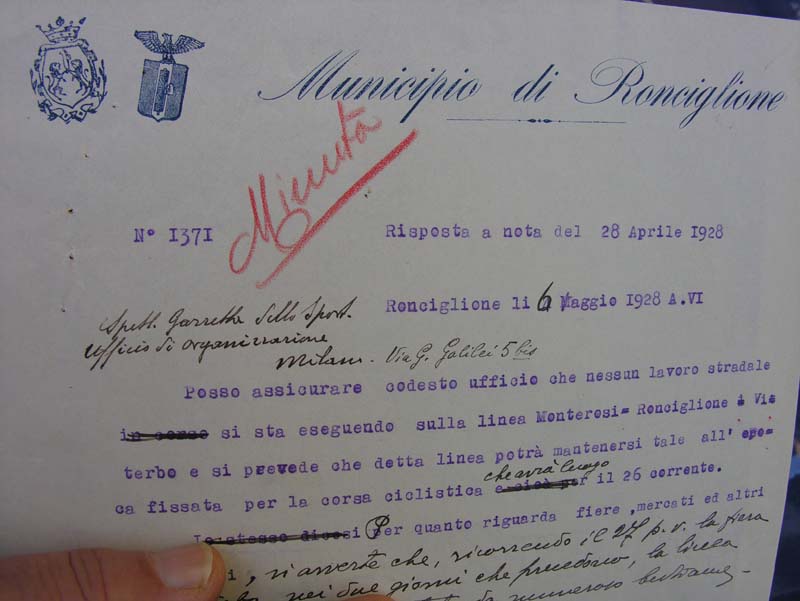 Municipio di Ronciglione
Minuta
N° 1371
Risposta a nota del 28 Aprile 1928
Ronciglione li 6 Maggio 1928 A.VI
Spett. Gazzetta dello Sport.
Ufficio di organizzazione
Milano. Via G. Galilei 5 bis
Posso assicurare codesto ufficio che nessun lavoro stradale
in corso si sta eseguendo sulla linea Monterosi= Ronciglione = Vi=
terbo e si prevede che detta linea potrà mantenersi tale all' epo=
che avrà luogo
ca fissata per la corsa ciclistica e cioè per il 26 corrente.
Lo stesso dicesi Per quanto riguarda fiere, mercati ed altri
i, si avverte che, ricorrendo il 27 p.v. la fiera
nei due giorni che precedono, la linea
numeroso bestiame